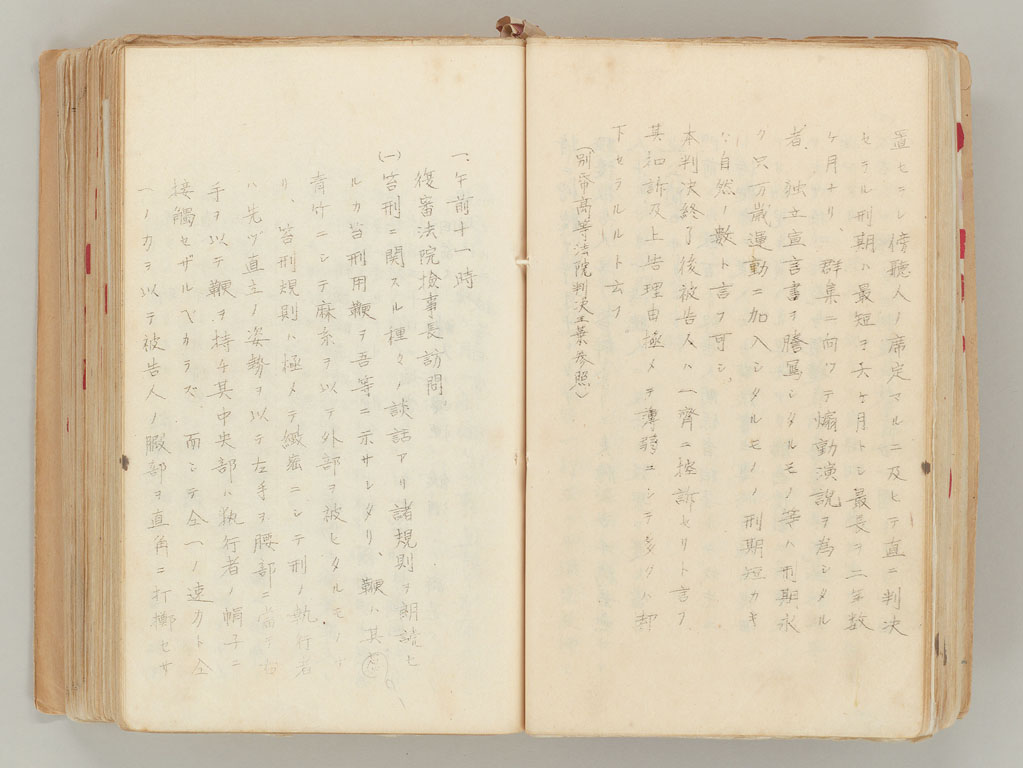 置セラレ傍聴人ノ席定マルニ及ヒテ直ニ判決
セラル刑期ハ最短ヲ六ヶ月トシ最長ヲ二年数
ヶ月ナリ、群集ニ向ツテ煽動演説ヲ為シタル
者、独立宣言書ヲ謄写シタルモノ等ハ刑期永
ク只万歳運動ニ加入シタルモノノ刑期短カキ
ハ自然ノ数ト言フ可シ、
本判決終了後被告人ハ一齊ニ控訴セリト言フ
其扣訴及上告理由極メテ薄弱ニシテ多クハ却
下セラルルト云フ
(別帋高等法院判決工葉参照)
一、午前十一時
復審法院検事長訪問
(一)笞刑ニ関スル種々ノ談話アリ諸規則ヲ朗読セ
ルカ笞刑用鞭ヲ吾等ニ示サレタリ、鞭ハ其
青竹ニシテ麻糸ヲ以テ外部ヲ被ヒタルモノナ
リ、笞刑規則ハ極メテ緻密ニシテ刑ノ執行者
ハ先ヅ直立ノ姿勢ヲ以テ左手ヲ腰部ニ當テ右
手ヲ以テ鞭ヲ持チ其中央部ハ執行者ノ帽子ニ
接觸セザルベカラズ 而シテ全一ノ速力ト全
一ノ力ヲ以テ被告人ノ臀部ヲ直角ニ打擲セサ